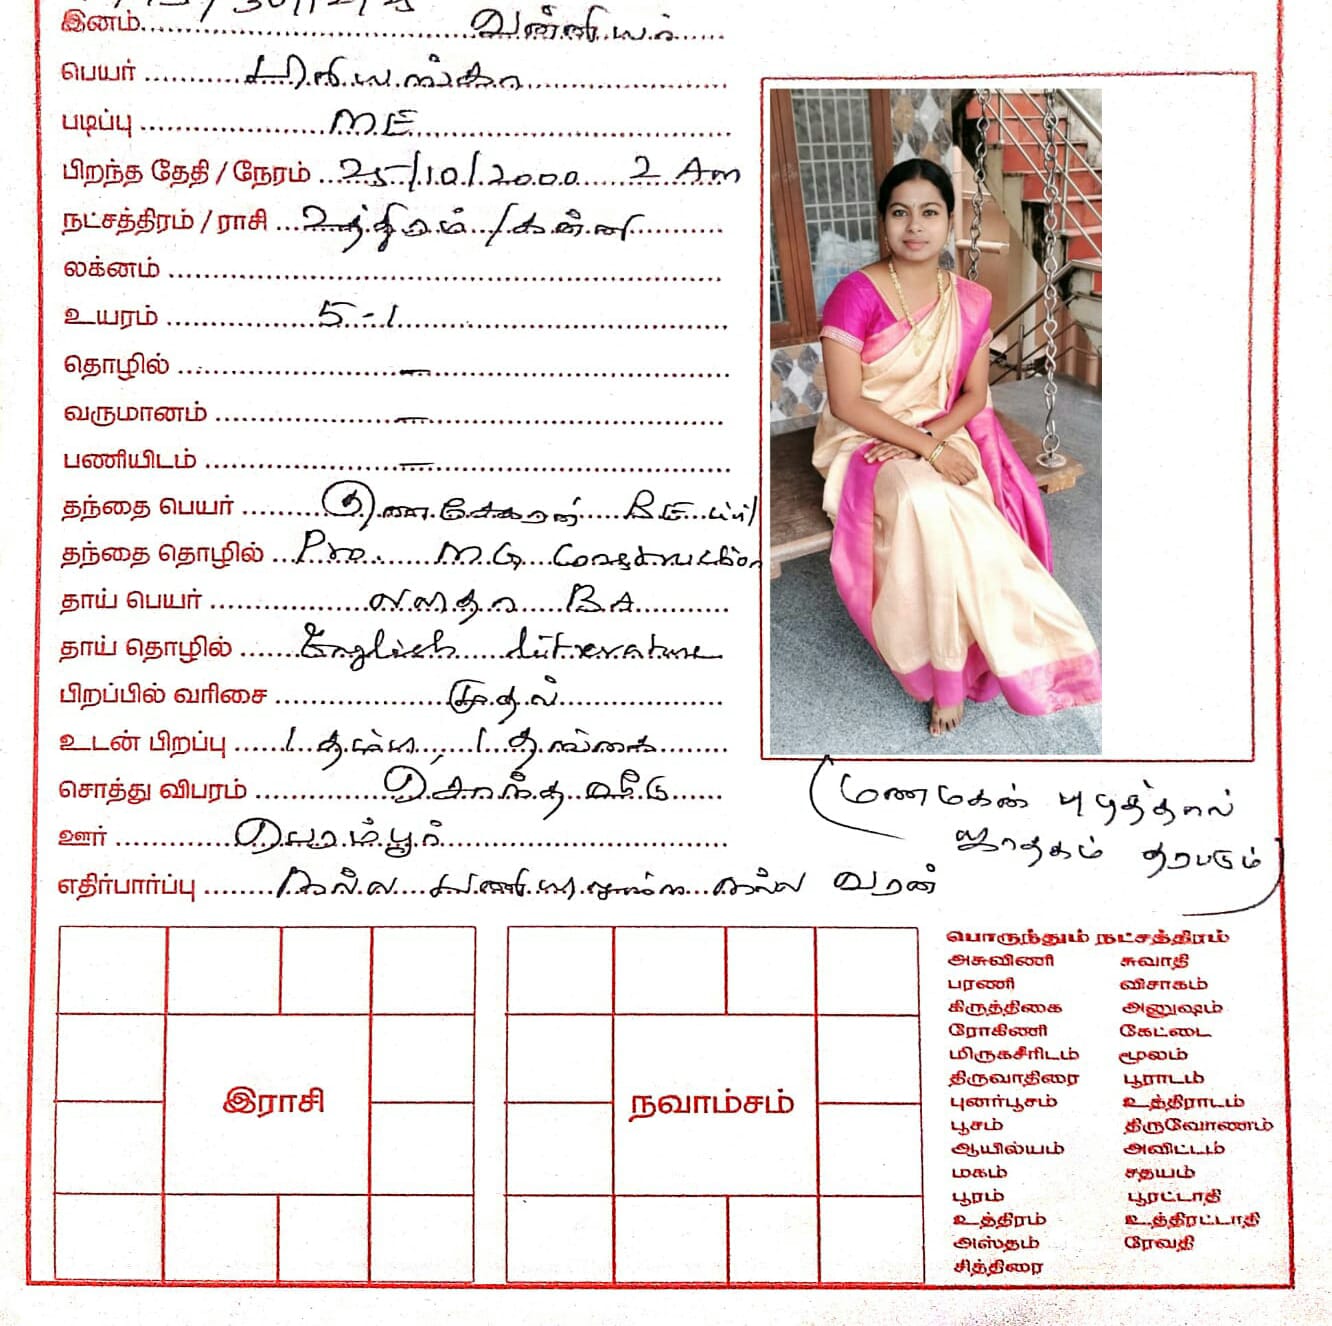 இனம்........ வன்னியர்
பெயர் ........ பிரியங்கா
படிப்பு ........ M.E
பிறந்த தேதி / நேரம் ... 25/10/2000 2 Am
நட்சத்திரம் / ராசி ... உத்திரம் / கன்னி
லக்னம் ........
உயரம் ........ 5-1
தொழில் ........ –
வருமானம் ........ –
பணியிடம் ........ –
தந்தை பெயர் ........ குணசேகரன் B.E civil
தந்தை தொழில் ... Pro. M.G Construction
தாய் பெயர் ........ லதா B.A
தாய் தொழில் ....... English literature
பிறப்பில் வரிசை ........ முதல்
உடன் பிறப்பு ...... 1 தம்பி, 1 தங்கை
சொத்து விபரம் ........ சொந்த வீடு
ஊர் ........ பெரம்பூர்
எதிர்பார்ப்பு ........ நல்ல நல்ல வரன்
(மணமகன் பிடித்தால்
ஜாதகம் தரபடும்)
இராசி
நவாம்சம்
பொருந்தும் நட்சத்திரம்
அசுவிணி சுவாதி
பரணி விசாகம்
கிருத்திகை அனுஷம்
ரோகிணி கேட்டை
மிருகசீரிடம் மூலம்
திருவாதிரை பூராடம்
புனர்பூசம் உத்திராடம்
பூசம் திருவோணம்
ஆயில்யம் அவிட்டம்
மகம் சதயம்
பூரம் பூரட்டாதி
உத்திரம் உத்திரட்டாதி
அஸ்தம் ரேவதி
சித்திரை